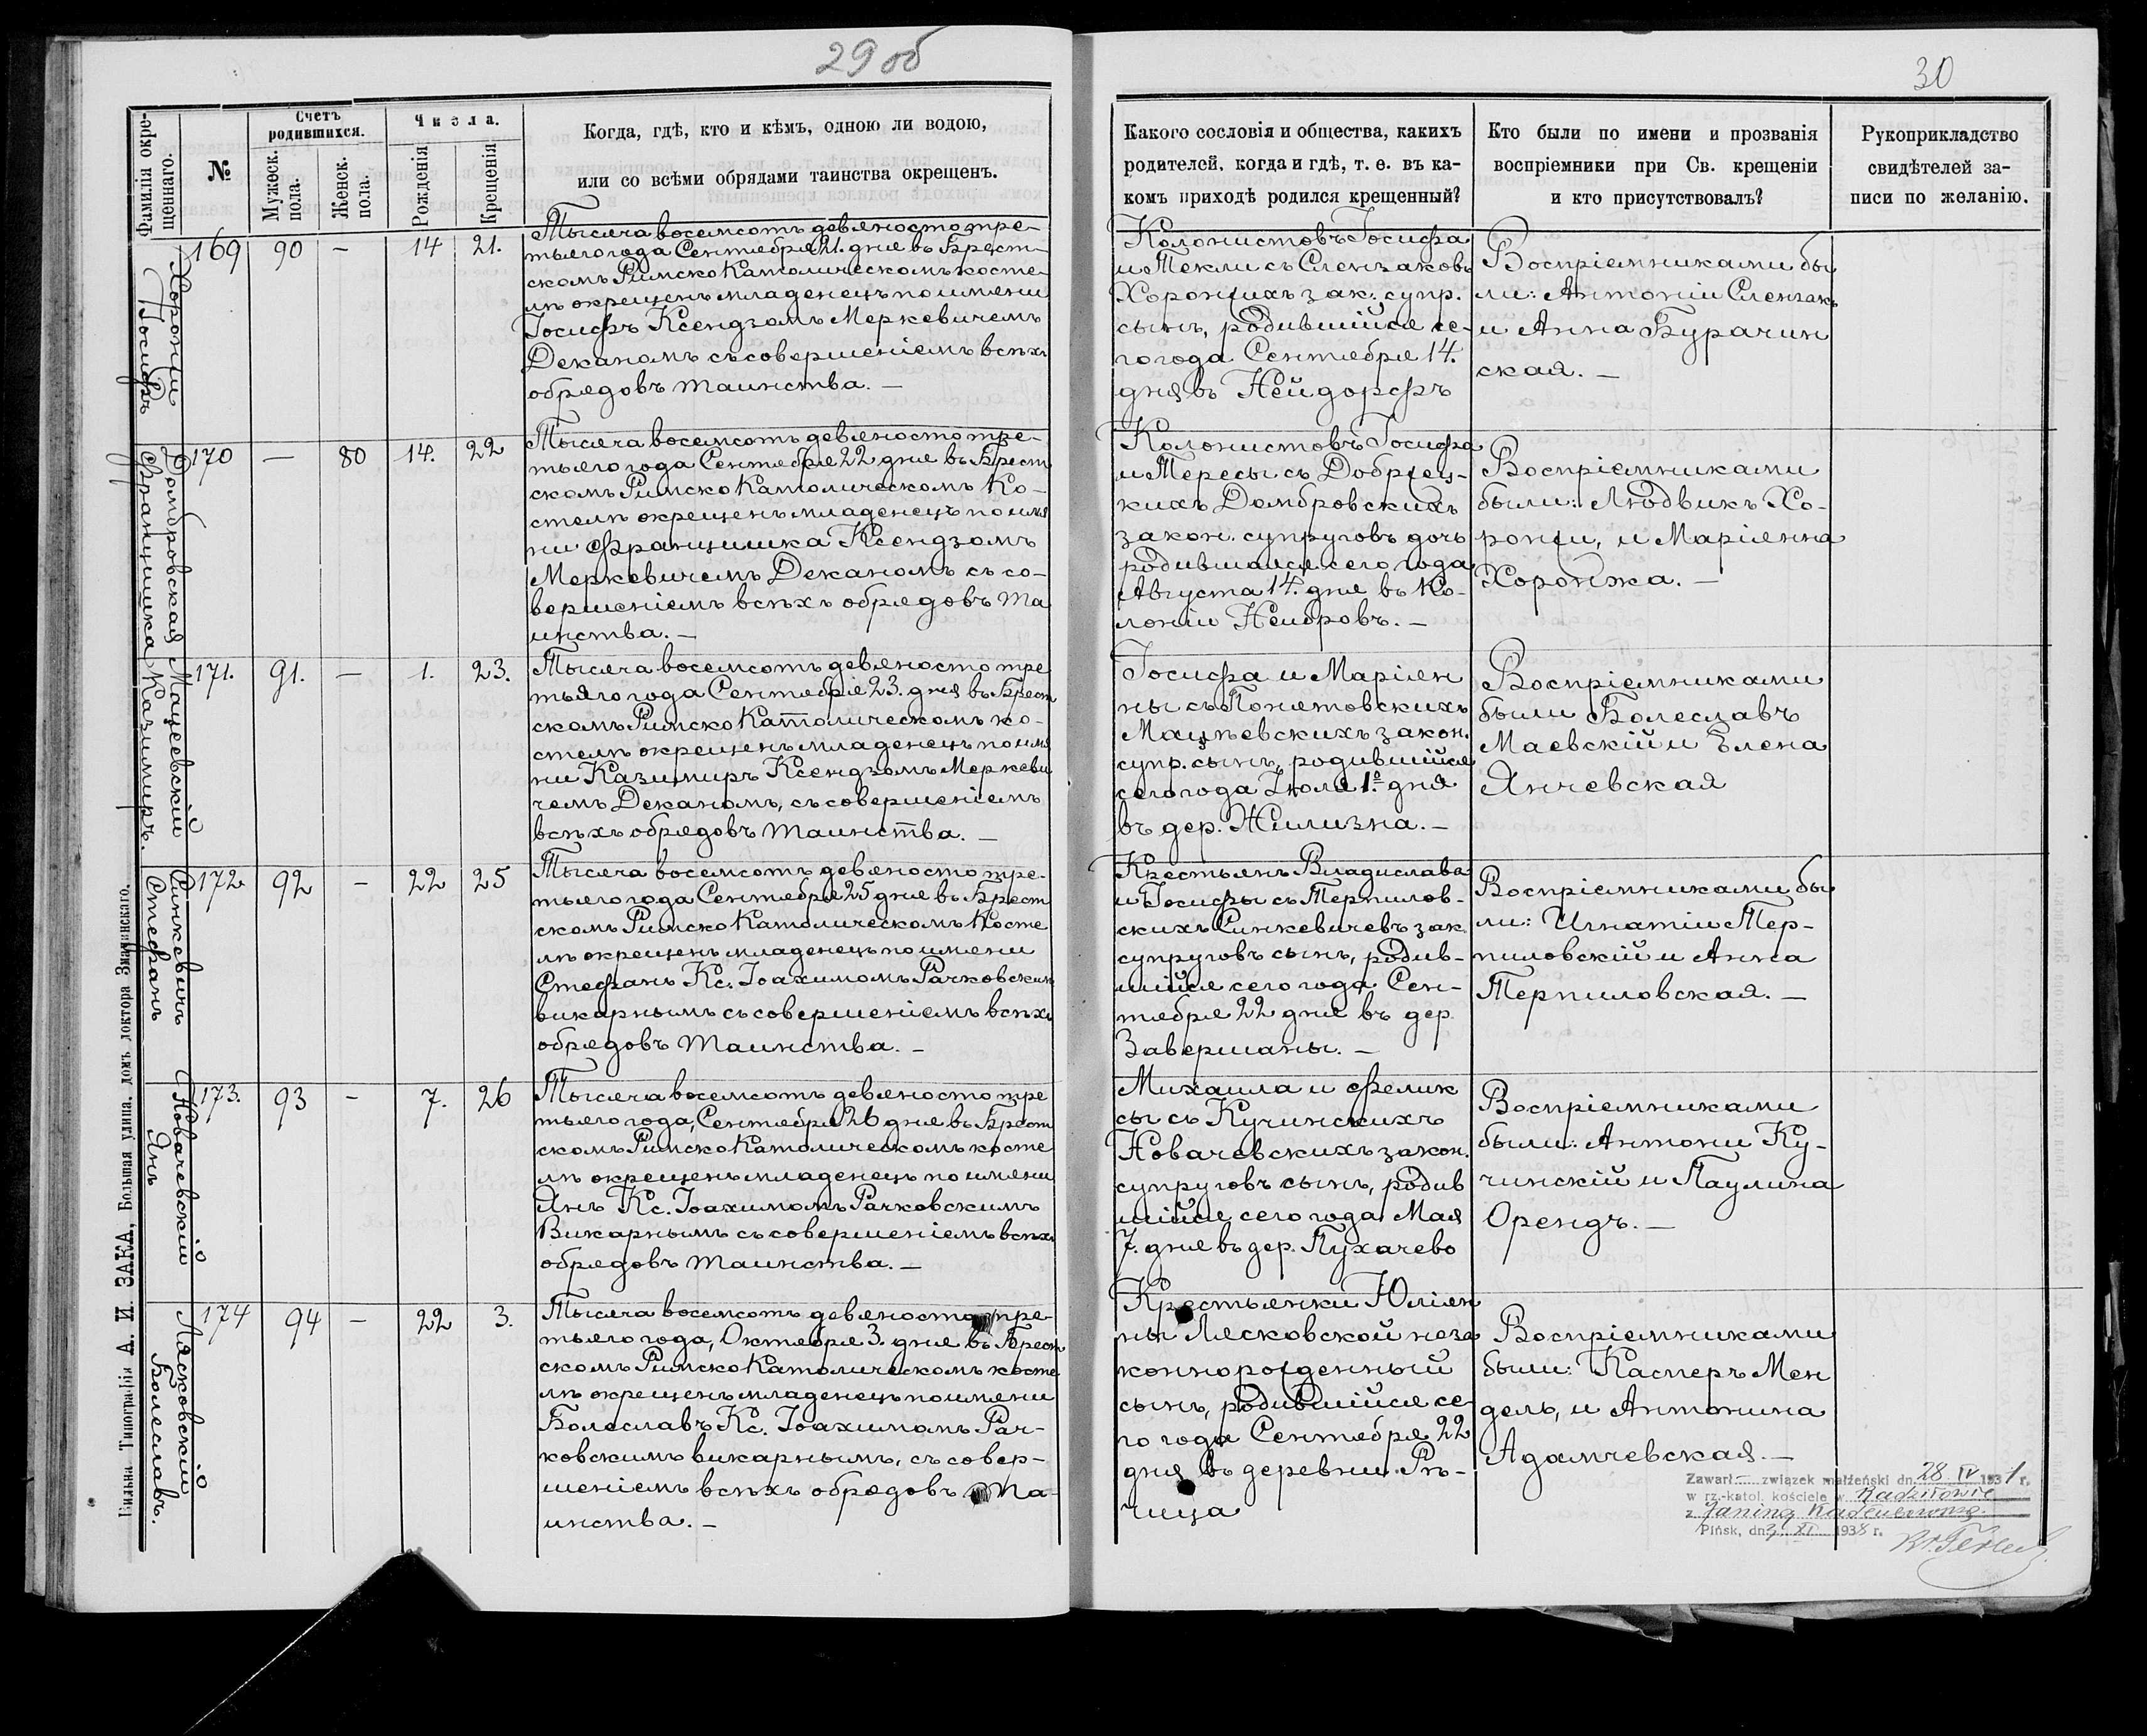 29 об
30
Фамилія окре-
щеннаго.
№
Счетъ
родившихся.
Мужеск.
пола.
Женск.
пола.
Числа.
Рожденія
Крещенія
Когда, гдѣ, кто и кѣмъ, одною ли водою,
или со всѣми обрядами таинства окрещенъ.
Какого сословія и общества, какихъ
родителей, когда и гдѣ, т. е. въ ка-
комъ приходѣ родился крещенный?
Кто были по имени и прозванія
воспріемники при Св. крещеніи
и кто присутствовалъ?
Рукоприкладство
свидѣтелей за-
писи по желанію.
Хоронжи
Іосифъ
169 90 — 14 21.
Тысяча восемсотъ девяносто тре-
тьяго года Сентября 21. дня въ Брест-
скомъ Римско Католическомъ косте-
лѣ окрещенъ младенецъ по имени
Іосифъ Ксендзомъ Меркевичемъ
Деканомъ съ совершеніемъ всѣхъ
обрядовъ таинства. —
Колонистовъ Іосифа
и Текли съ Слензаковъ
Хоронжихъ зак. супр.
сынъ, родившійся се-
го года Сентября 14.
дня въ Нейдорфъ
Воспріемниками бы
ли: Антоніи Слензакъ
и Анна Бурачин
ская. —
Домбровская
Францишка
170 — 80 14. 22
Тысяча восемсотъ девяносто тре-
тьяго года Сентября 22 дня въ Брест
скомъ Римско Католическомъ Ко-
стелѣ окрещенъ младенецъ по имя
ни Францишка Ксендзомъ
Меркевичемъ Деканомъ съ со-
вершеніемъ всѣхъ обрядовъ та
инства. —
Колонистовъ Іосифа
и Тересы съ Добржец-
кихъ Домбровскихъ
закон. супруговъ дочь
родившаяся сего года
Августа 14. дня въ Ко-
лоніи Неибровъ. —
Воспріемниками
были: Людвикъ Хо-
ронжи, и Маріянна
Хоронжа. —
Мацеевскій
Казимиръ.
171. 91. — 1. 23.
Тысяча восемсотъ девяносто тре
тьяго года Сентября 23. дня въ Брест
скомъ Римско Католическомъ ко-
стелѣ окрещенъ младенецъ по имя
ни Казимиръ Ксендзомъ Меркеви
чемъ Деканомъ, съ совершеніемъ
всѣхъ обрядовъ таинства. —
Іосифа и Маріян
ны съ Понятовскихъ
Мацѣевскихъ закон.
супр. сынъ, родившійся
сего года Іюля 1º дня
въ дер. Жилизна. —
Воспріемниками
были Болеславъ
Маевскій и Елена
Янчевская
Синкевичъ
Стефанъ
172 92 — 22 25
Тысяча восемсотъ девяносто тре-
тьяго года Сентября 25 дня въ Брест
скомъ Римско Католическомъ Косте
лѣ окрещенъ младенецъ по имени
Стефанъ Кс. Іоахимомъ Рачковскимъ
викарнымъ съ совершеніемъ всѣхъ
обрядовъ таинства. —
Крестьянъ Владислава
и Іосифы съ Терпилов-
скихъ Синкевичевъ зак.
супруговъ сынъ, родив-
шійся сего года Сен-
тября 22 дня въ дер.
Завершаны. —
Воспріемниками бы
ли: Игнатіи Тер-
пиловскій и Анна
Терпиловская. —
Новачевскій
Янъ
173. 93 — 7. 26
Тысяча восемсотъ девяносто тре
тьяго года, Сентября 26 дня въ Брест
скомъ Римско Католическомъ косте
лѣ окрещенъ младенецъ по имени
Янъ Кс. Іоахимомъ Рачковскимъ
Викарнымъ съ совершеніемъ всѣхъ
обрядовъ таинства. —
Михаила и Фелик
сы съ Кучинскихъ
Новачевскихъ закон.
супруговъ сынъ, родив
шійся сего года Мая
7. дня въ дер. Пухачево
Воспріемниками
были: Антони Ку-
чинскій и Паулина
Орендъ. —
Лясковскій
Болеславъ.
174 94 — 22 3.
Тысяча восемсотъ девяносто тре-
тьяго года, Октября 3. дня въ Брест
скомъ Римско Католическомъ косте
лѣ окрещенъ младенецъ по имени
Болеславъ Кс. Іоахимомъ Рач-
ковскимъ викарнымъ, съ совер-
шеніемъ всѣхъ обрядовъ та-
инства. —
Крестьянки Юліян
ны Лясковской неза
коннорожденный
сынъ, родившійся се-
го года Сентября 22
дня въ деревни Рѣ-
чица
Воспріемниками
были: Касперъ Мен
дель, и Антонина
Адамчевская. —
Zawarł — związek małżeński dn. 28 IV 1931 r.
w rz.-katol. kościele w Radziłowie
z Janiną
Pińsk, dn. 3 XI 1938 r.
Вильна Типографія А. И. ЗАКА, Большая улица, домъ доктора Знаманскаго.